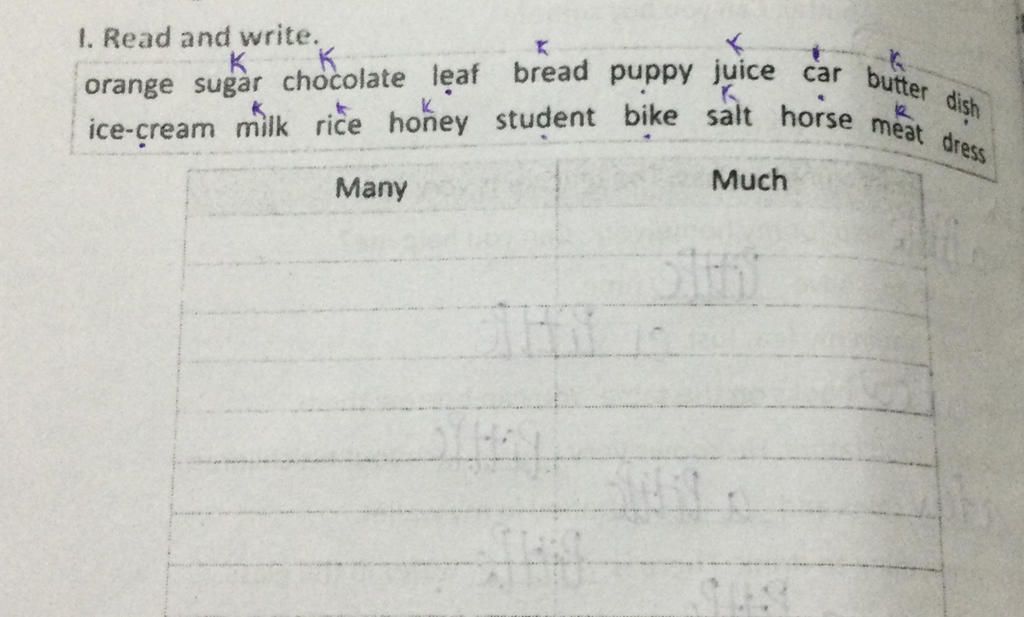 I. Read and write.
orange sugar chocolate leaf bread puppy juice car butter dish
ice-cream milk rice honey student bike salt horse meat dress
Many Much